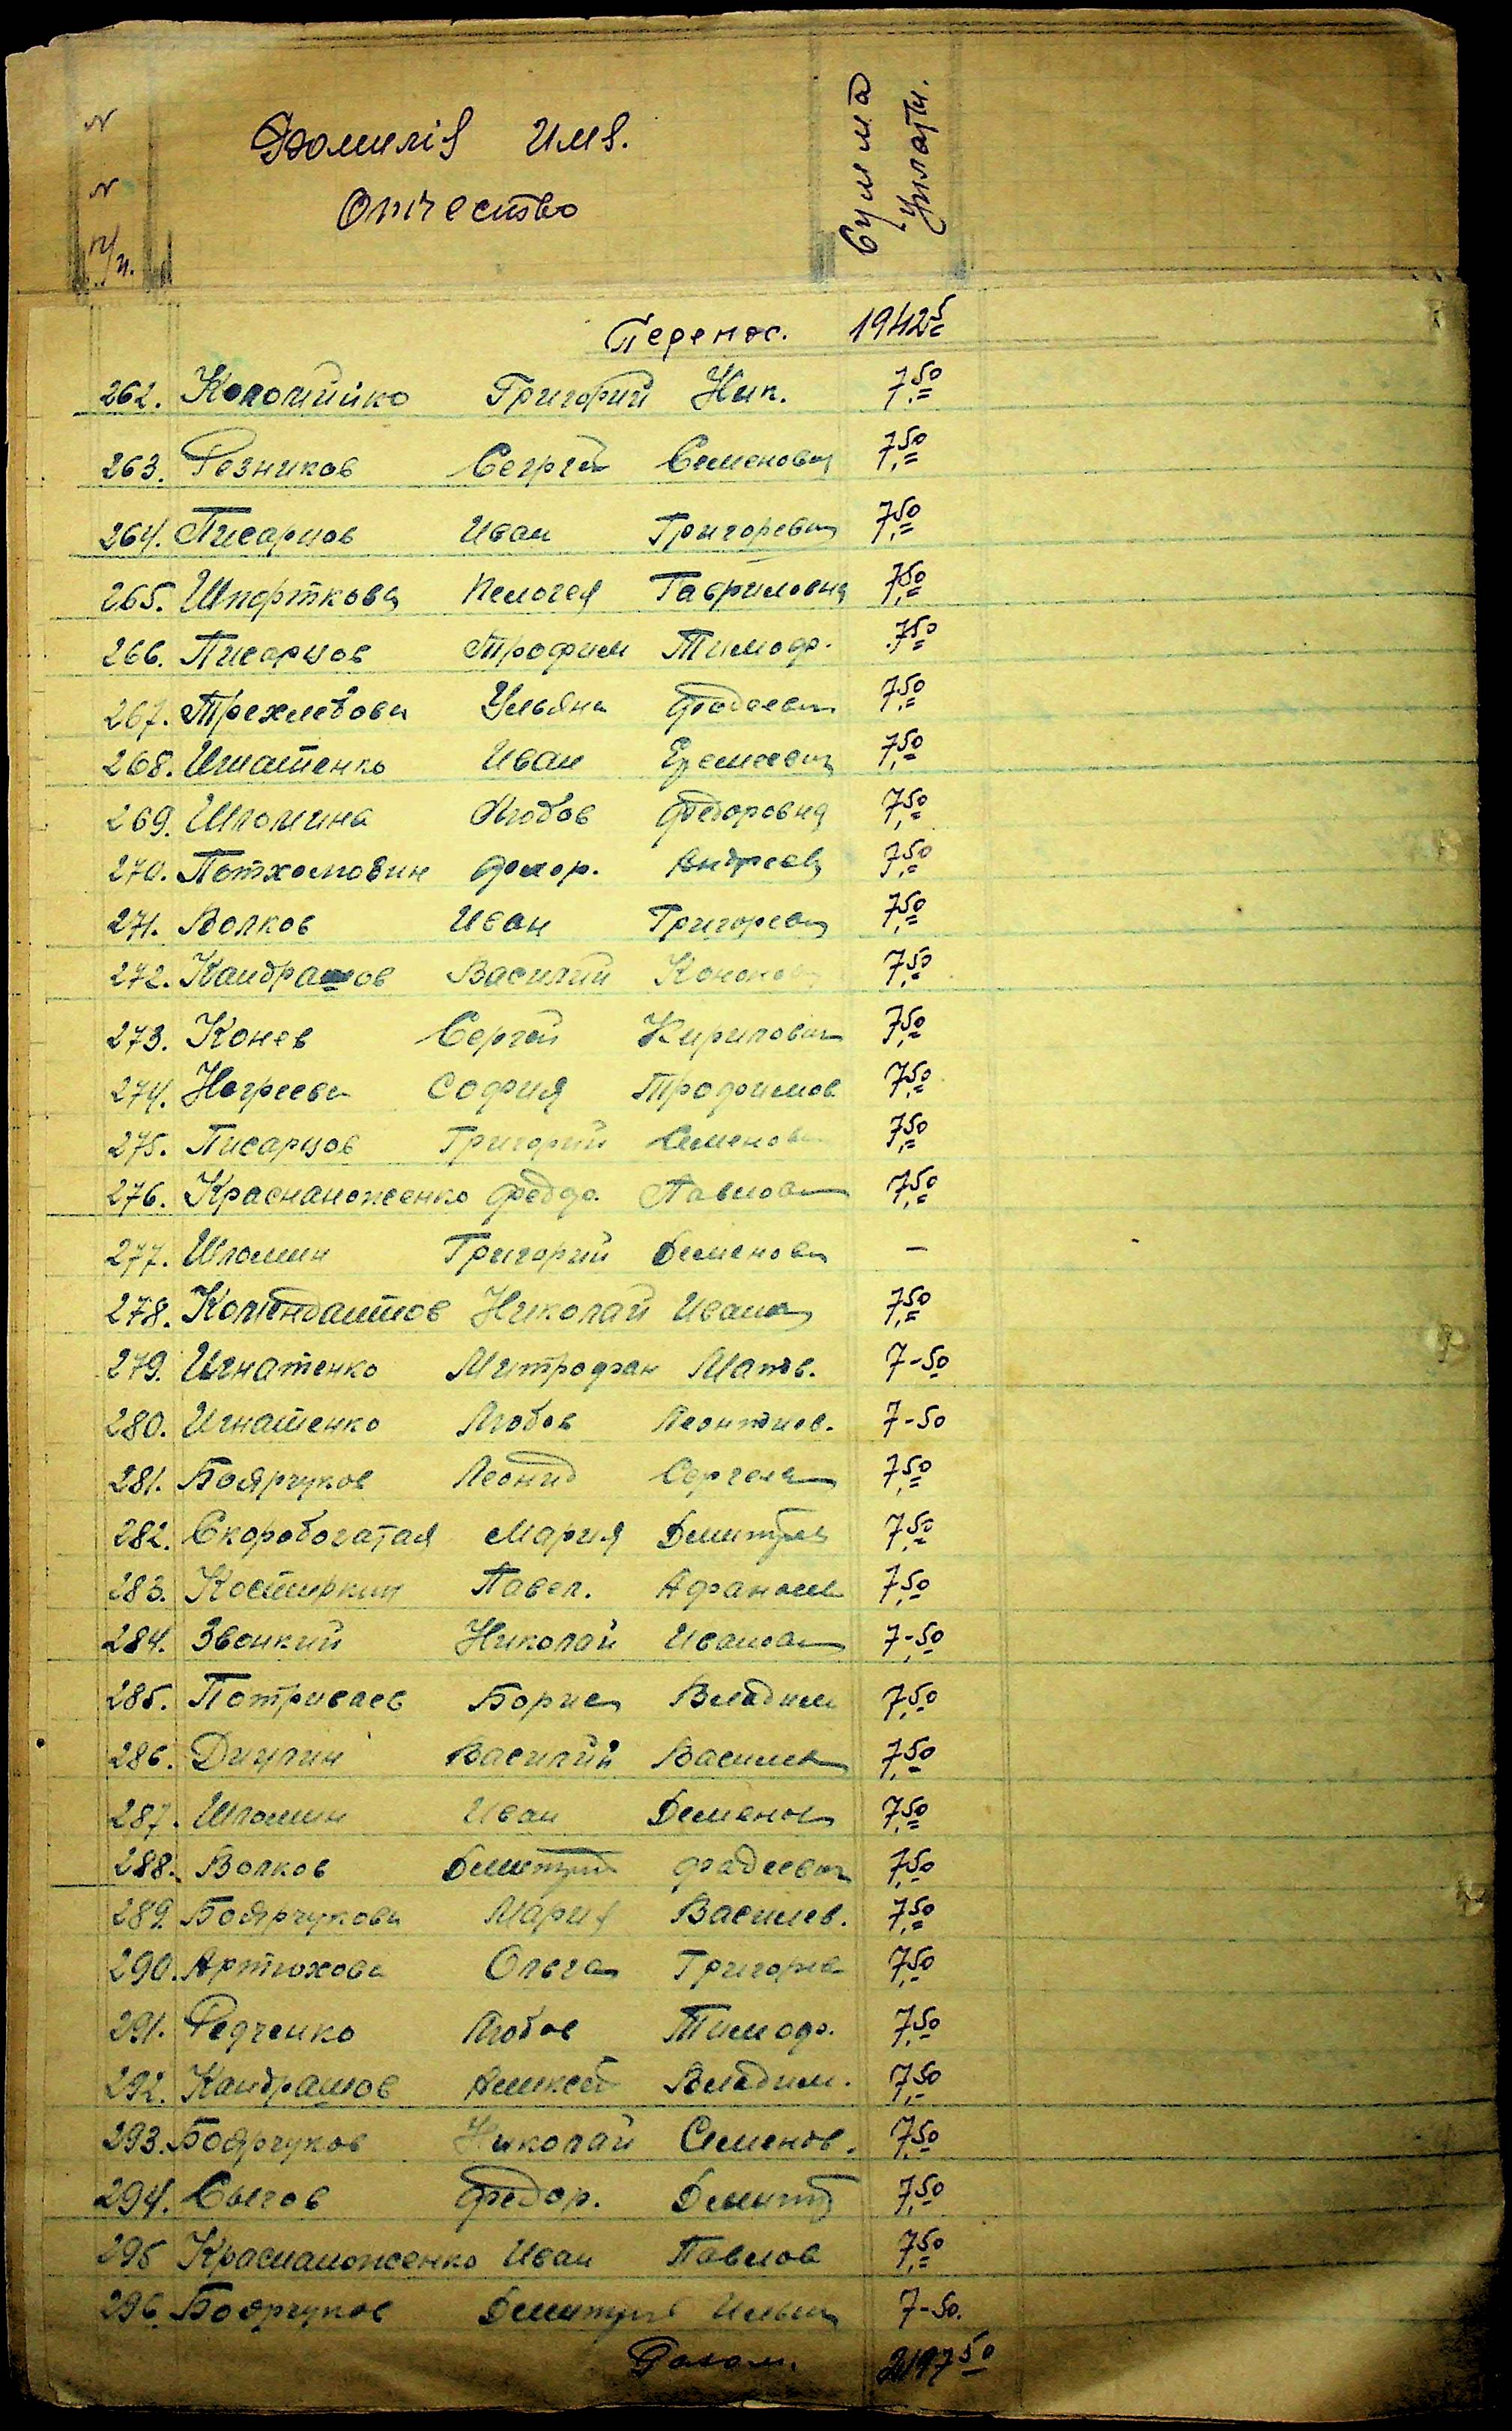 N
N
п/п.
Фамилія Имя.
Отчество
Сумма
уплати.
Перенос. 1942 5
262. Коломийко Григорий Ник. 7,50
263. Резников Сергей Семенович 7,50
264. Писарцов Иван Григоревич 7,50
265. Шпорткова Пелогея Гавриловна 7,50
266. Писарцов Трофим Тимоф. 7,50
267. Трехлебова Ульяна Фадеевн 7,50
268. Игнатенко Иван Еремеевич 7,50
269. Шломина Любов Федоровна 7,50
270. Андреев 7,50
271. Волков Иван Григоревич 7,50
272. Кандрашов Василий Кононов 7,50
273. Конев Сергей Кирилович 7,50
274. София Трофимов 7,50
275. Писарцов Григорий Семенович 7,50
276. Краснаноженко Федор Павлович 7,50
277. Шломин Григорий Семенович —
278. Комендантов Николай Иванов 7,50
279. Игнатенко Митрофан Матв. 7-50
280. Игнатенко Любов Леонтиев. 7-50
281. Боярчуков Леонид Сергеев 7,50
282. Скоробогатая Мария Дмитрев 7,50
283. Костиркин Павел. Афанасев 7,50
284. Звонкий Николай Иванович 7-50
285. Потриваев Борис Владим 7,50
286. Дицлин Василий Василев 7,50
287. Шломин Иван Семенов 7,50
288. Волков Дмитрий Фадеевич 7,50
289. Боярчукова Мария Василев. 7,50
290. Артюхова Ольга Григорев 7,50
291. Редченко Любов Тимоф. 7,50
292. Кандрашов Алексей Владим. 7,50
293. Боярчуков Николай Семенов. 7,50
294. Сычов Федор. Дмитр 7,50
295 Краснаноженко Иван Павлов 7,50
296. Боярчуков Дмитрий Ильич 7-50.
Разом. 2197 50